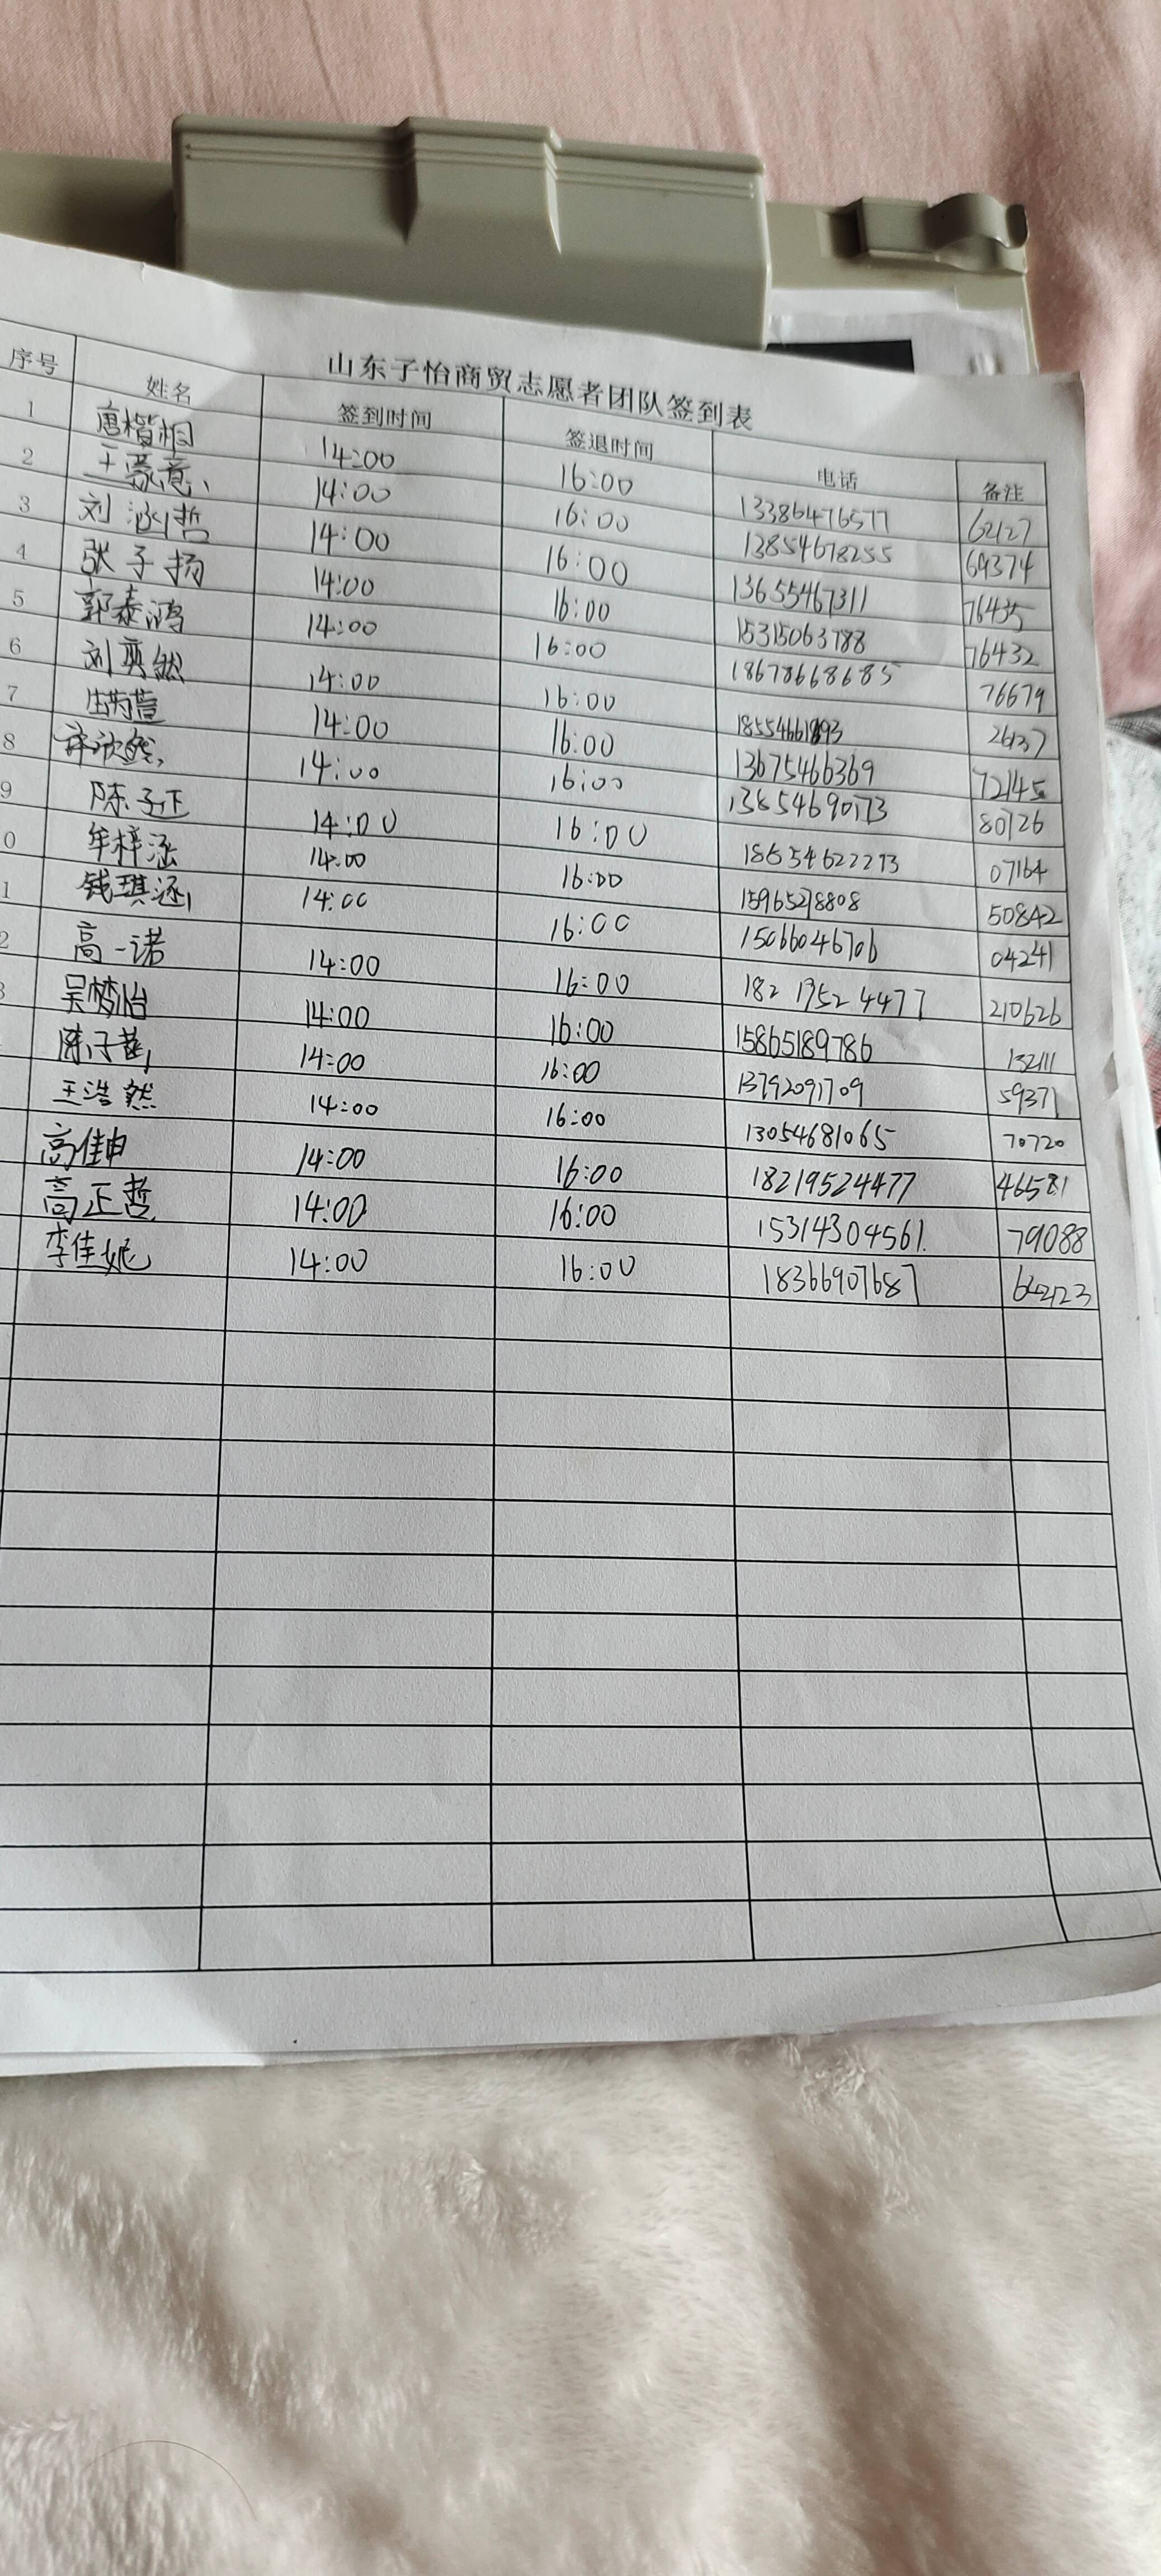 山东子怡商贸志愿者团队签到表
序号 姓名 签到时间 签退时间 电话 备注
1 唐楷桐 14:00 16:00 13386476577 62127
2 王豪意 14:00 16:00 13854678255 69374
3 刘涵哲 14:00 16:00 13655467311 76435
4 张子扬 14:00 16:00 15315063788 76432
5 郭泰鸿 14:00 16:00 18678668685 76679
6 刘奕然 14:00 16:00 18554661893 26137
7 14:00 16:00 13675466369 72145
8 许欣然 14:00 16:00 13854690173 80726
9 陈子正 14:00 16:00 18654622273 07164
0 牟梓涵 14:00 16:00 15965278808 50842
1 钱琪涵 14:00 16:00 15066046706 04241
2 高一诺 14:00 16:00 182 1952 4477 210626
3 吴梦怡 14:00 16:00 15865189786 132111
陈子菡 14:00 16:00 13792091709 59371
王浩然 14:00 16:00 13054681065 70720
高佳申 14:00 16:00 18219524477 46581
高正哲 14:00 16:00 15314304561. 79088
李佳妮 14:00 16:00 18366907687